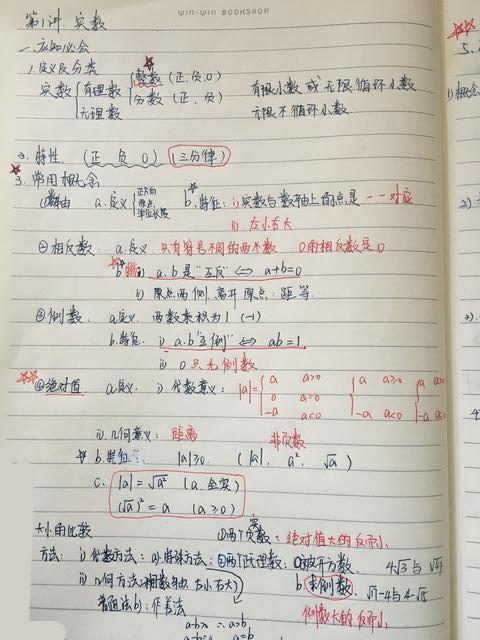 WIN-WIN BOOKSHOP
第1讲 实数
一.应知必会
1.定义及分类
实数 { 有理数 { 整数 (正,负,0) 有限小数 或 无限循环小数
分数 (正,负)
无理数 无限不循环小数
2. 特性. (正 负 0) (三分律)
3. 常用概念
①数轴 a.定义 { 正方向 原点 单位长度 b.特征: i) 实数与数轴上的点是 一一对应
ii) 左小右大
②相反数: a.定义. 只有符号不同的两个数 0的相反数是0
b. i) a.b是"互反" <=> a+b=0
ii) 原点两侧,离开原点:距等.
③倒数. a.定义. 两数乘积为1 (-1)
b.特征. i) a.b"互倒" <=> ab=1
ii) 0只无倒数
④绝对值. a.定义. i).代数意义: |a|= { a a>0 0 a=0 -a a<0 { a a≥0 -a a<0 { a a>0 -a a≤0
ii.几何意义: 距离 非负数
b.特征: |a|≥0. (|a|, a², √a)
c. |a|=√a² (a.全实)
(√a)²=a (a≥0)
大小的比较 ①两个负数:绝对值大的反而小
方法: i) 代数方法: a) ②两个无理数: a.被开方数. 4√3与
ii) 几何方法(用数轴 左小右大) b.求倒数.
b):作差法 倒数大的反而小
a-b>0 ∴a>b
a=b
5.
1)概念
2)
3).